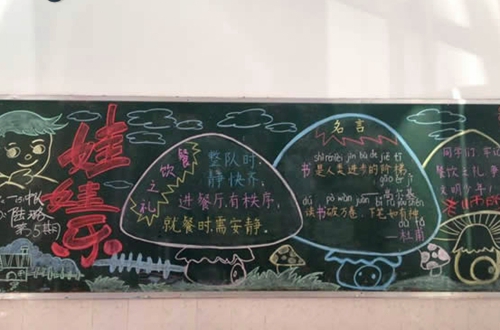 娃娃乐
第5期
饮餐之礼
整队时,
静快齐,
进餐厅,有秩序,
就餐时,需安静。
名言
shū shì rén lèi jìn bù de jiē tī
书是人类进步的阶梯
gāo ěr jī
高尔基
dú shū pò wàn juàn
读书破万卷,下笔如有神
dù fǔ
杜甫
同学们,牢记
餐饮之礼,争
文明少年!